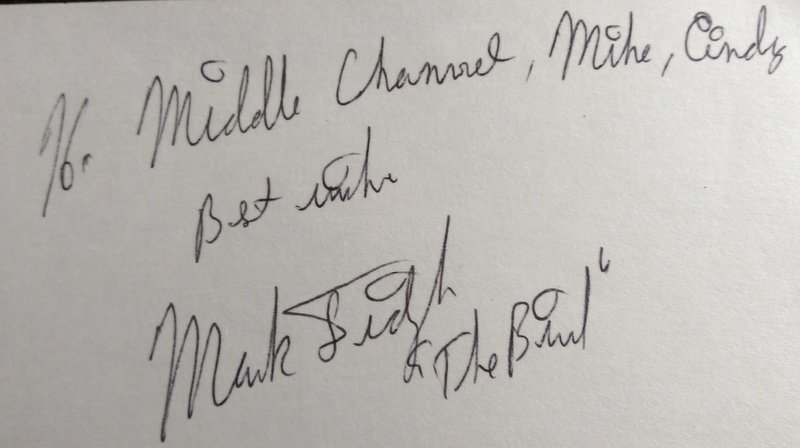 To. Middle Channel, Mike, Cindy
Best wishes
Mark Fidrych
"The Bird"